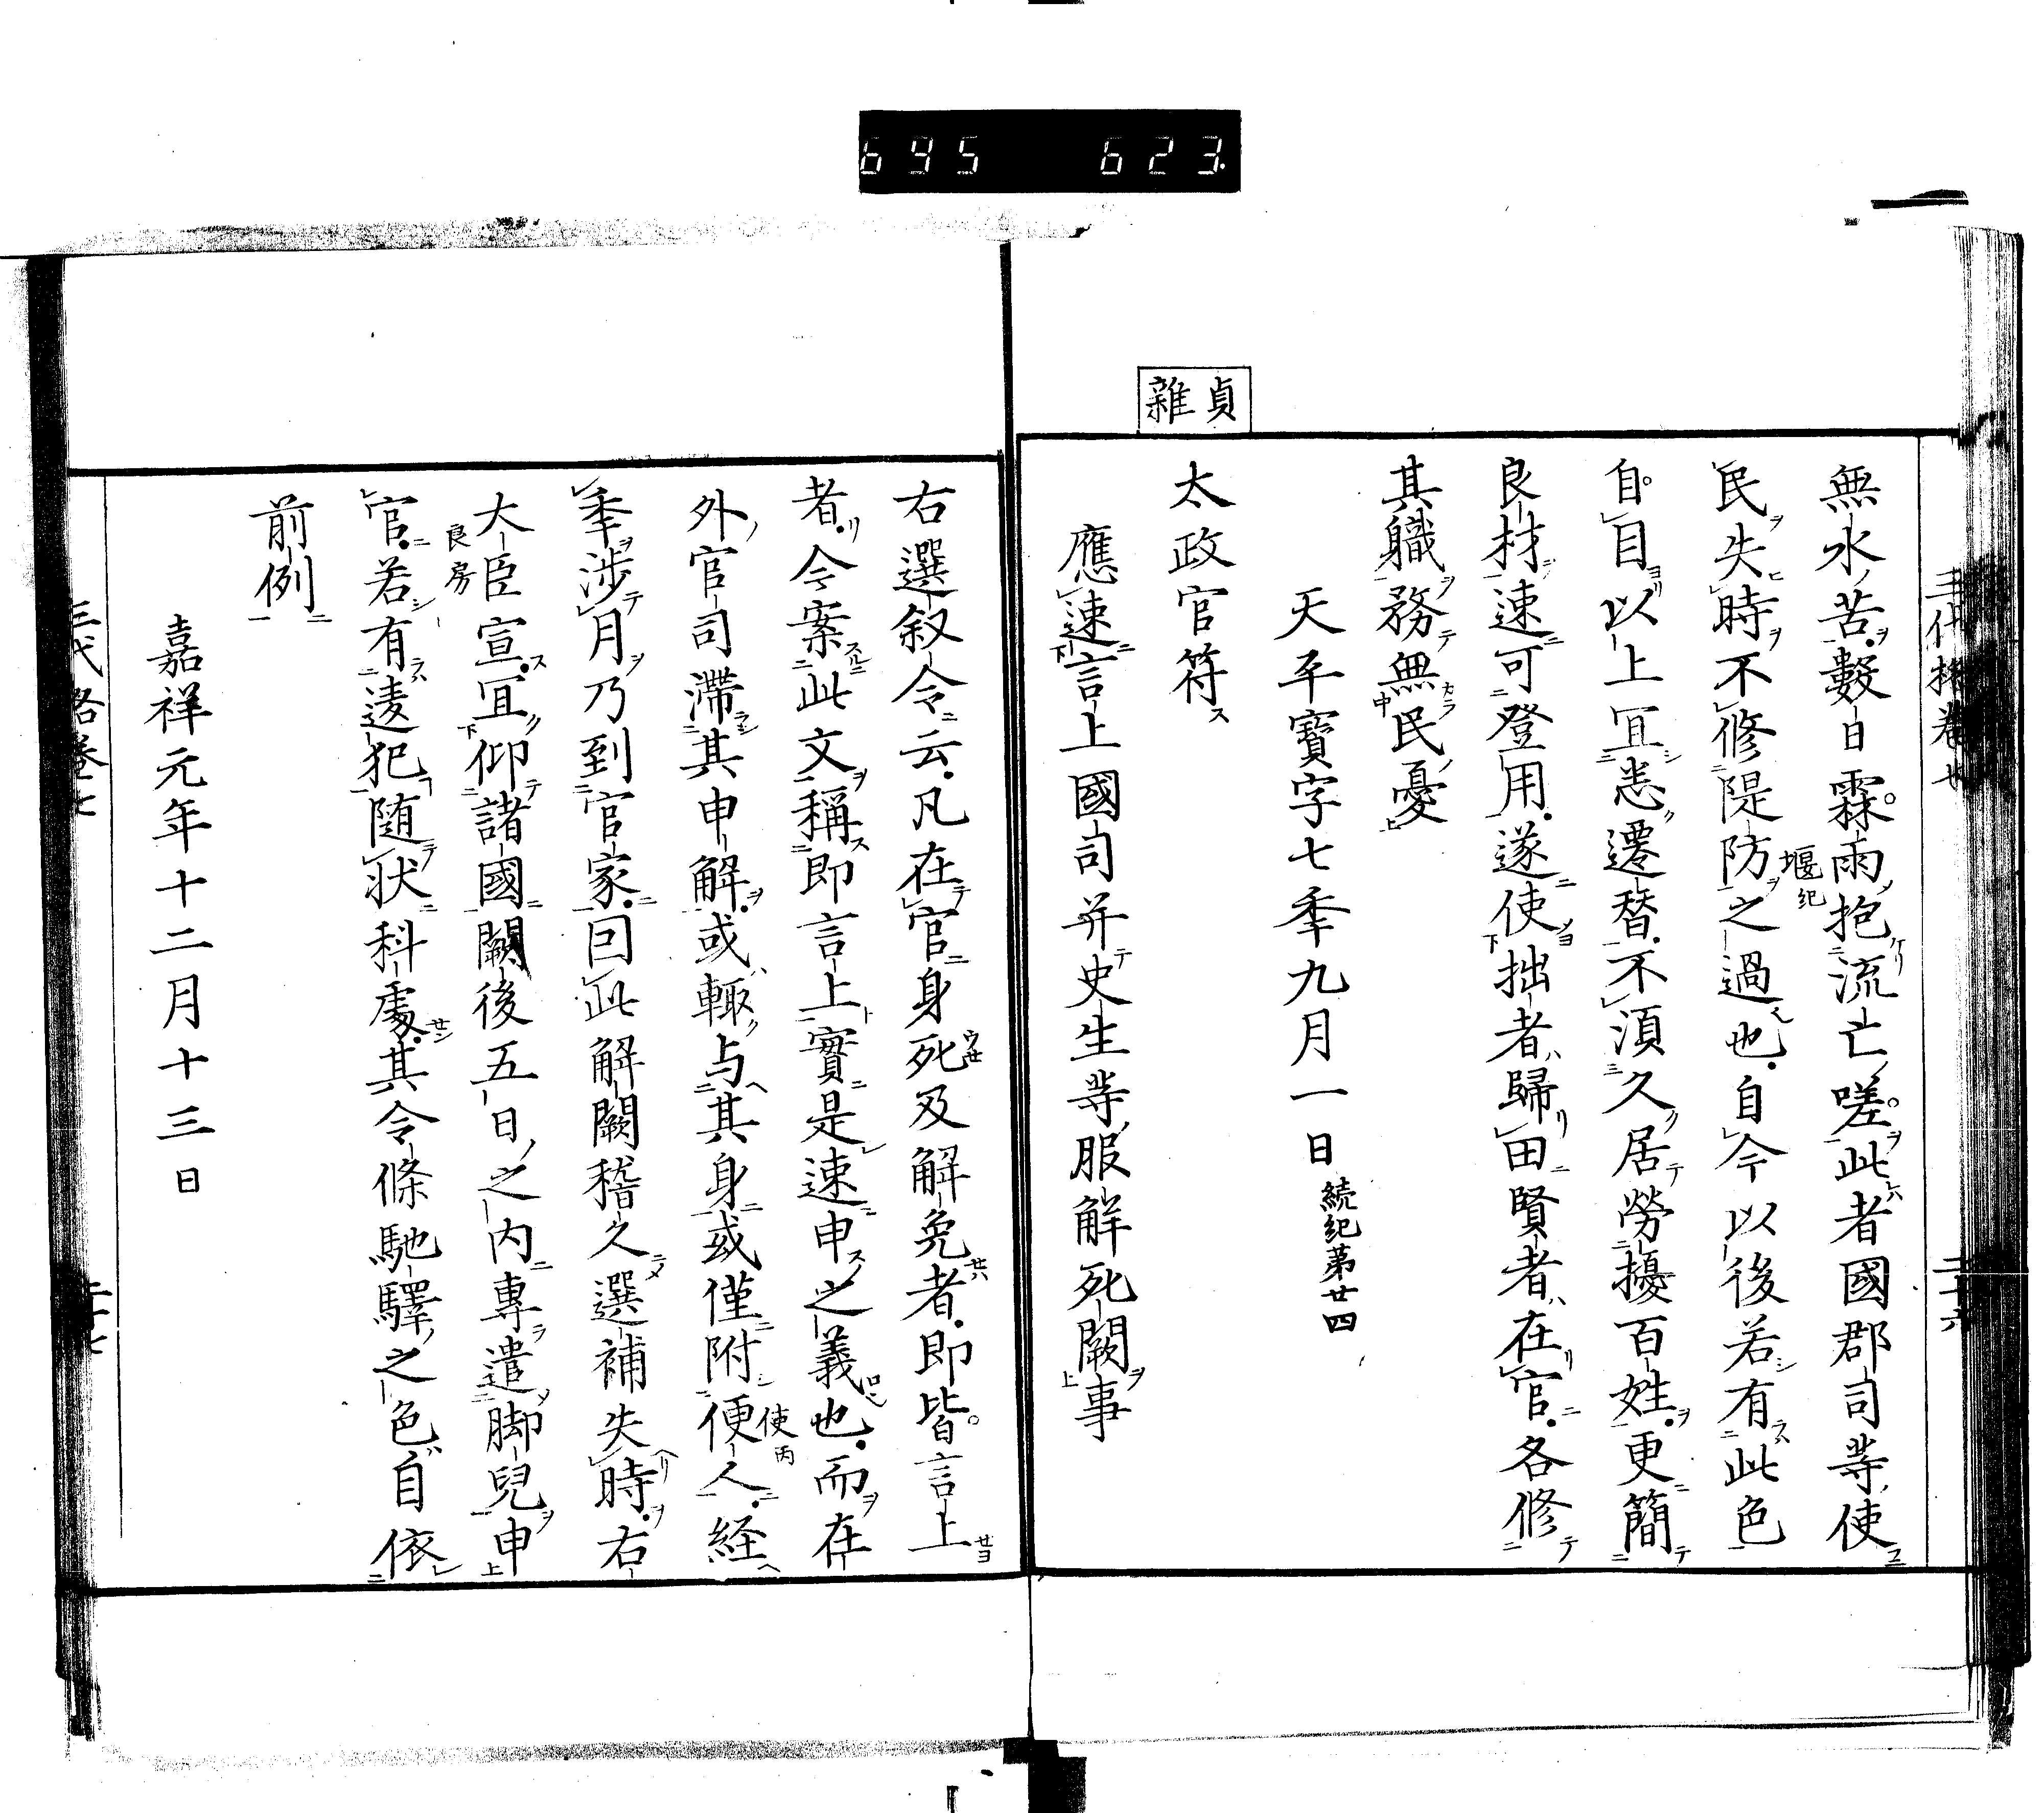 695 623
無水苦数日霖雨抱流亡嗟此者國郡司等使
堰紀
民失時不修隄防之過也自今以後若有此色
自目以上冝悉遷替不湏久居勞擾百姓更簡
良材速可登用遂使拙者歸田賢者在官各修
其軄務無民憂
天平寶字七秊九月一日 続紀第廿四
貞
雜
太政官符
應速言上國司并史生等服解死闕事
右選叙令云凡在官身死及解免者即皆言上
者今案此文稱即言上實是速申之義也而在
外官司滯其申解或輙与其身或僅附便人経
使丙
秊涉月乃到官家囙此解闕稽久選補失時右
大臣宣冝仰諸國闕後五日之内專遣脚兒申
良房
官若有違犯随状科處其令條馳驛之色自依
前例
嘉祥元年十二月十三日